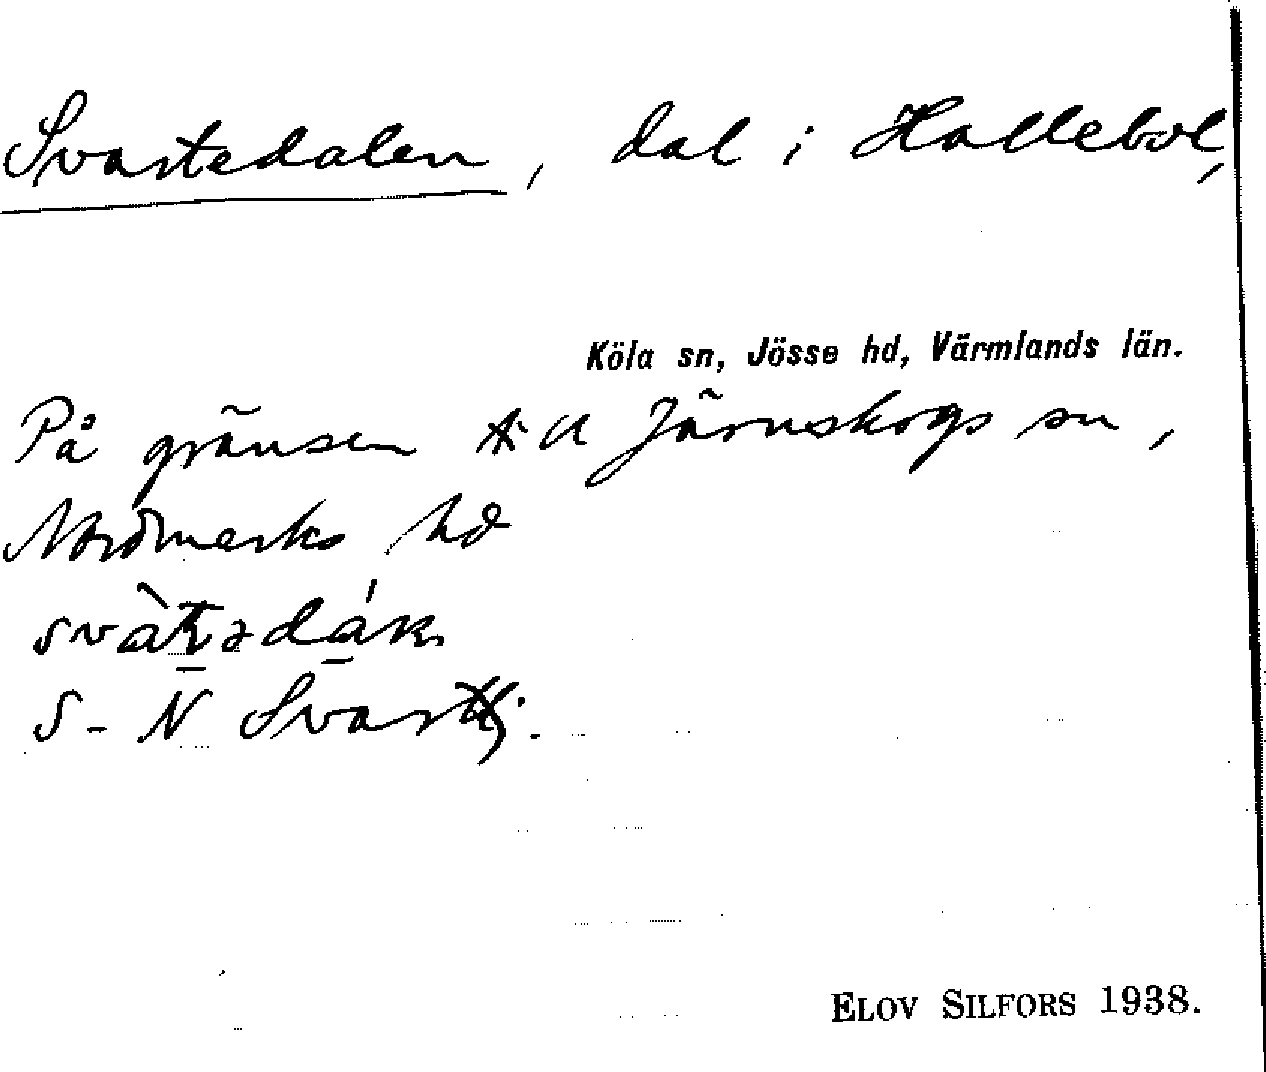 Svartedalen, dal i Hallebol,
Köla sn, Jösse hd, Värmlands län.
På gränsen till Järnskogs sn,
Nordmarks hd
S-N Svart
ELOV SILFORS 1938.